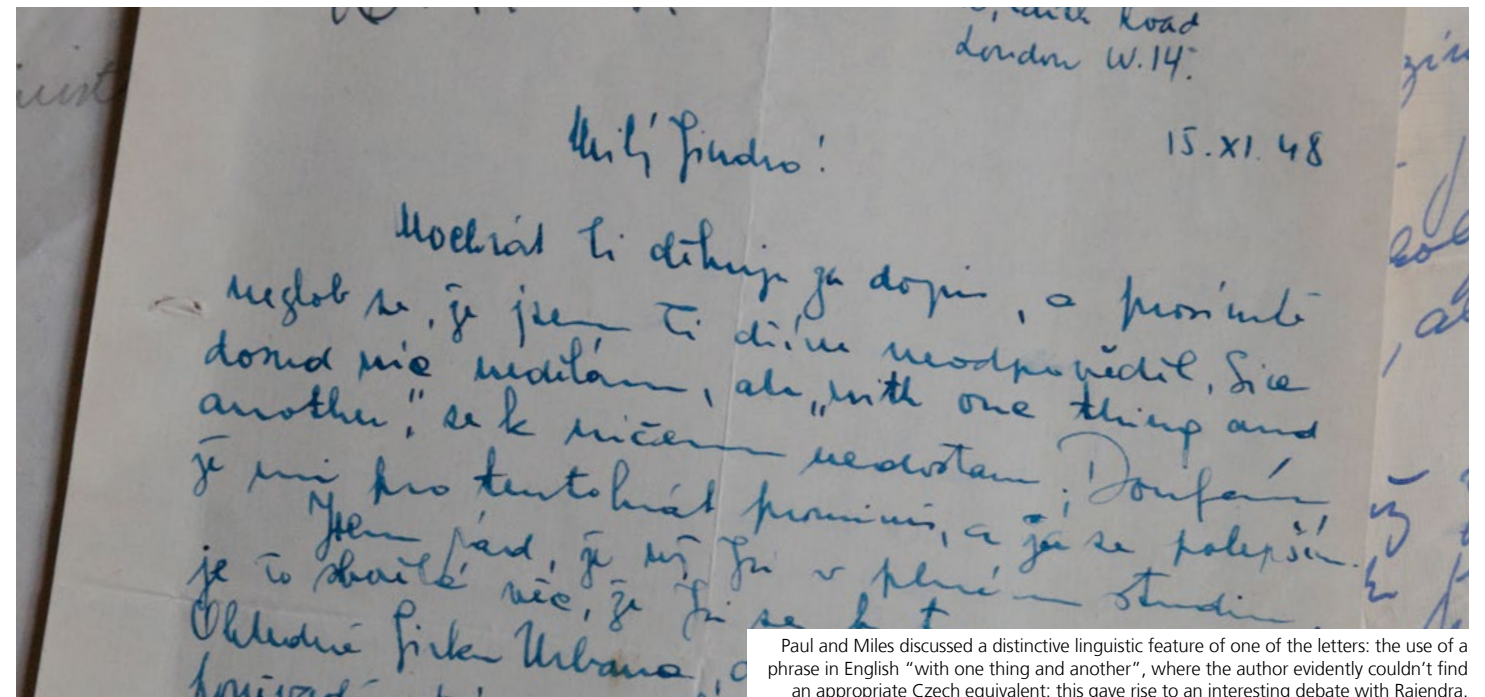 Road
London W.14.
Milý Jindro!
15.XI.48
Mockrát ti děkuji za dopis, a prosímtě
nezlob se, že jsem ti dříve neodpověděl. Sice
dosud nic nedělám, ale „with one thing and
another," se k ničemu nedostanu. Doufám,
že mi pro tentokrát promineš, a já se polepším.
Jsem rád, že už jsi v plném studiu,
je to skvělá věc, že jsi se
Ohledně Jirky Urbana,
Paul and Miles discussed a distinctive linguistic feature of one of the letters: the use of a
phrase in English “with one thing and another”, where the author evidently couldn’t find
an appropriate Czech equivalent; this gave rise to an interesting debate with Rajendra.